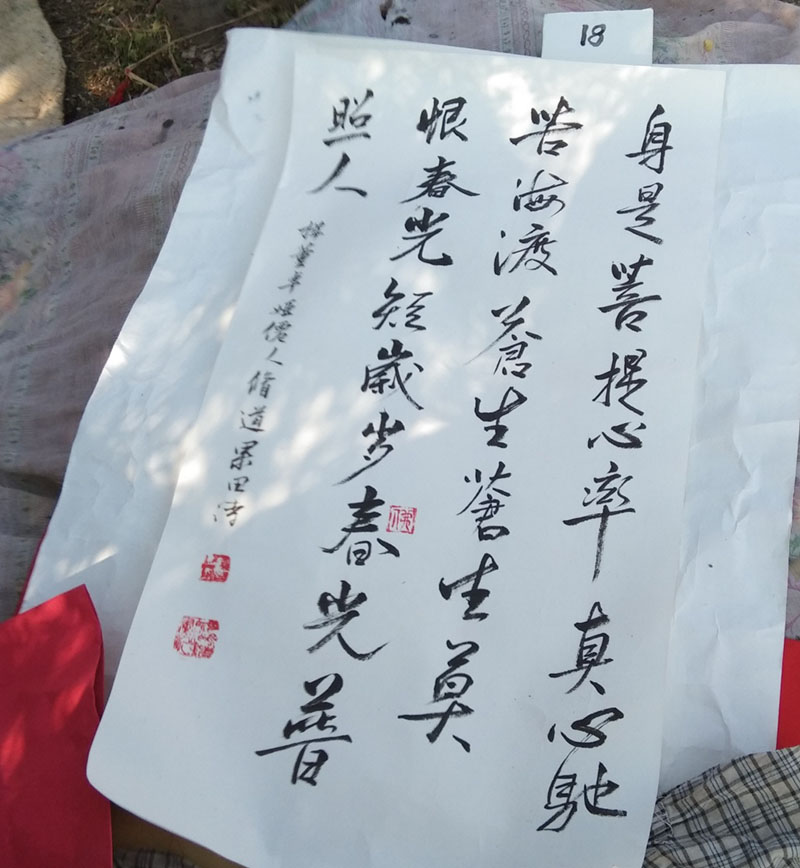 18
身是菩提心率真心馳
苦海渡蒼生蒼生莫
恨春光短歲岁春光普
照人
人脩道